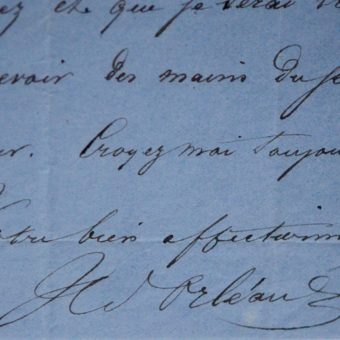 ez que je serai
evoir des mains du
Croyez moi toujou
Votre bien affectionn
H d'Orléans